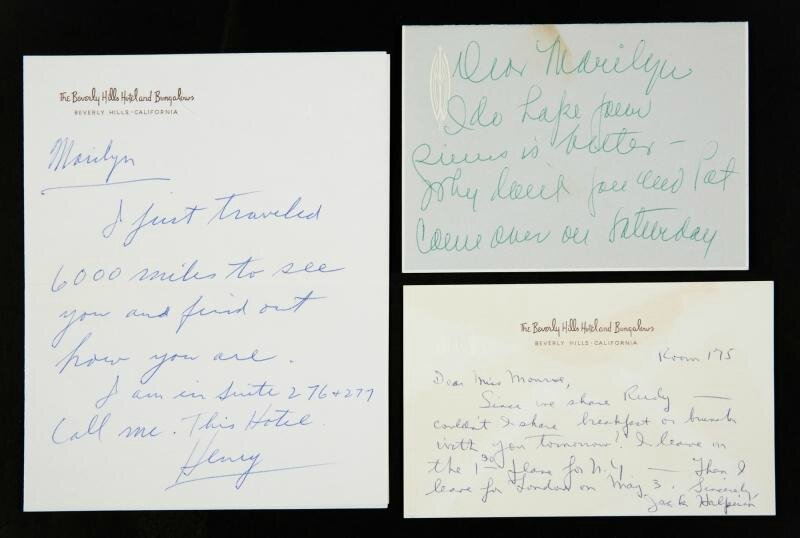 The Beverly Hills Hotel and Bungalows
BEVERLY HILLS · CALIFORNIA
Marilyn
I just traveled
6000 miles to see
you and find out
how you are.
I am in Suite 276+277
Call me. This Hotel.
Henry
Dear Marilyn
I do hope your
sinus is better –
Why don't you and Pat
come over on Saturday
The Beverly Hills Hotel and Bungalows
BEVERLY HILLS · CALIFORNIA
Room 175
Dear Miss Monroe,
Since we share Rudy —
couldn't I share breakfast or brunch
with you tomorrow? I leave on
the 1:30 plane for N.Y. — Then I
leave for London on May 3. Sincerely,
Jack Halperin